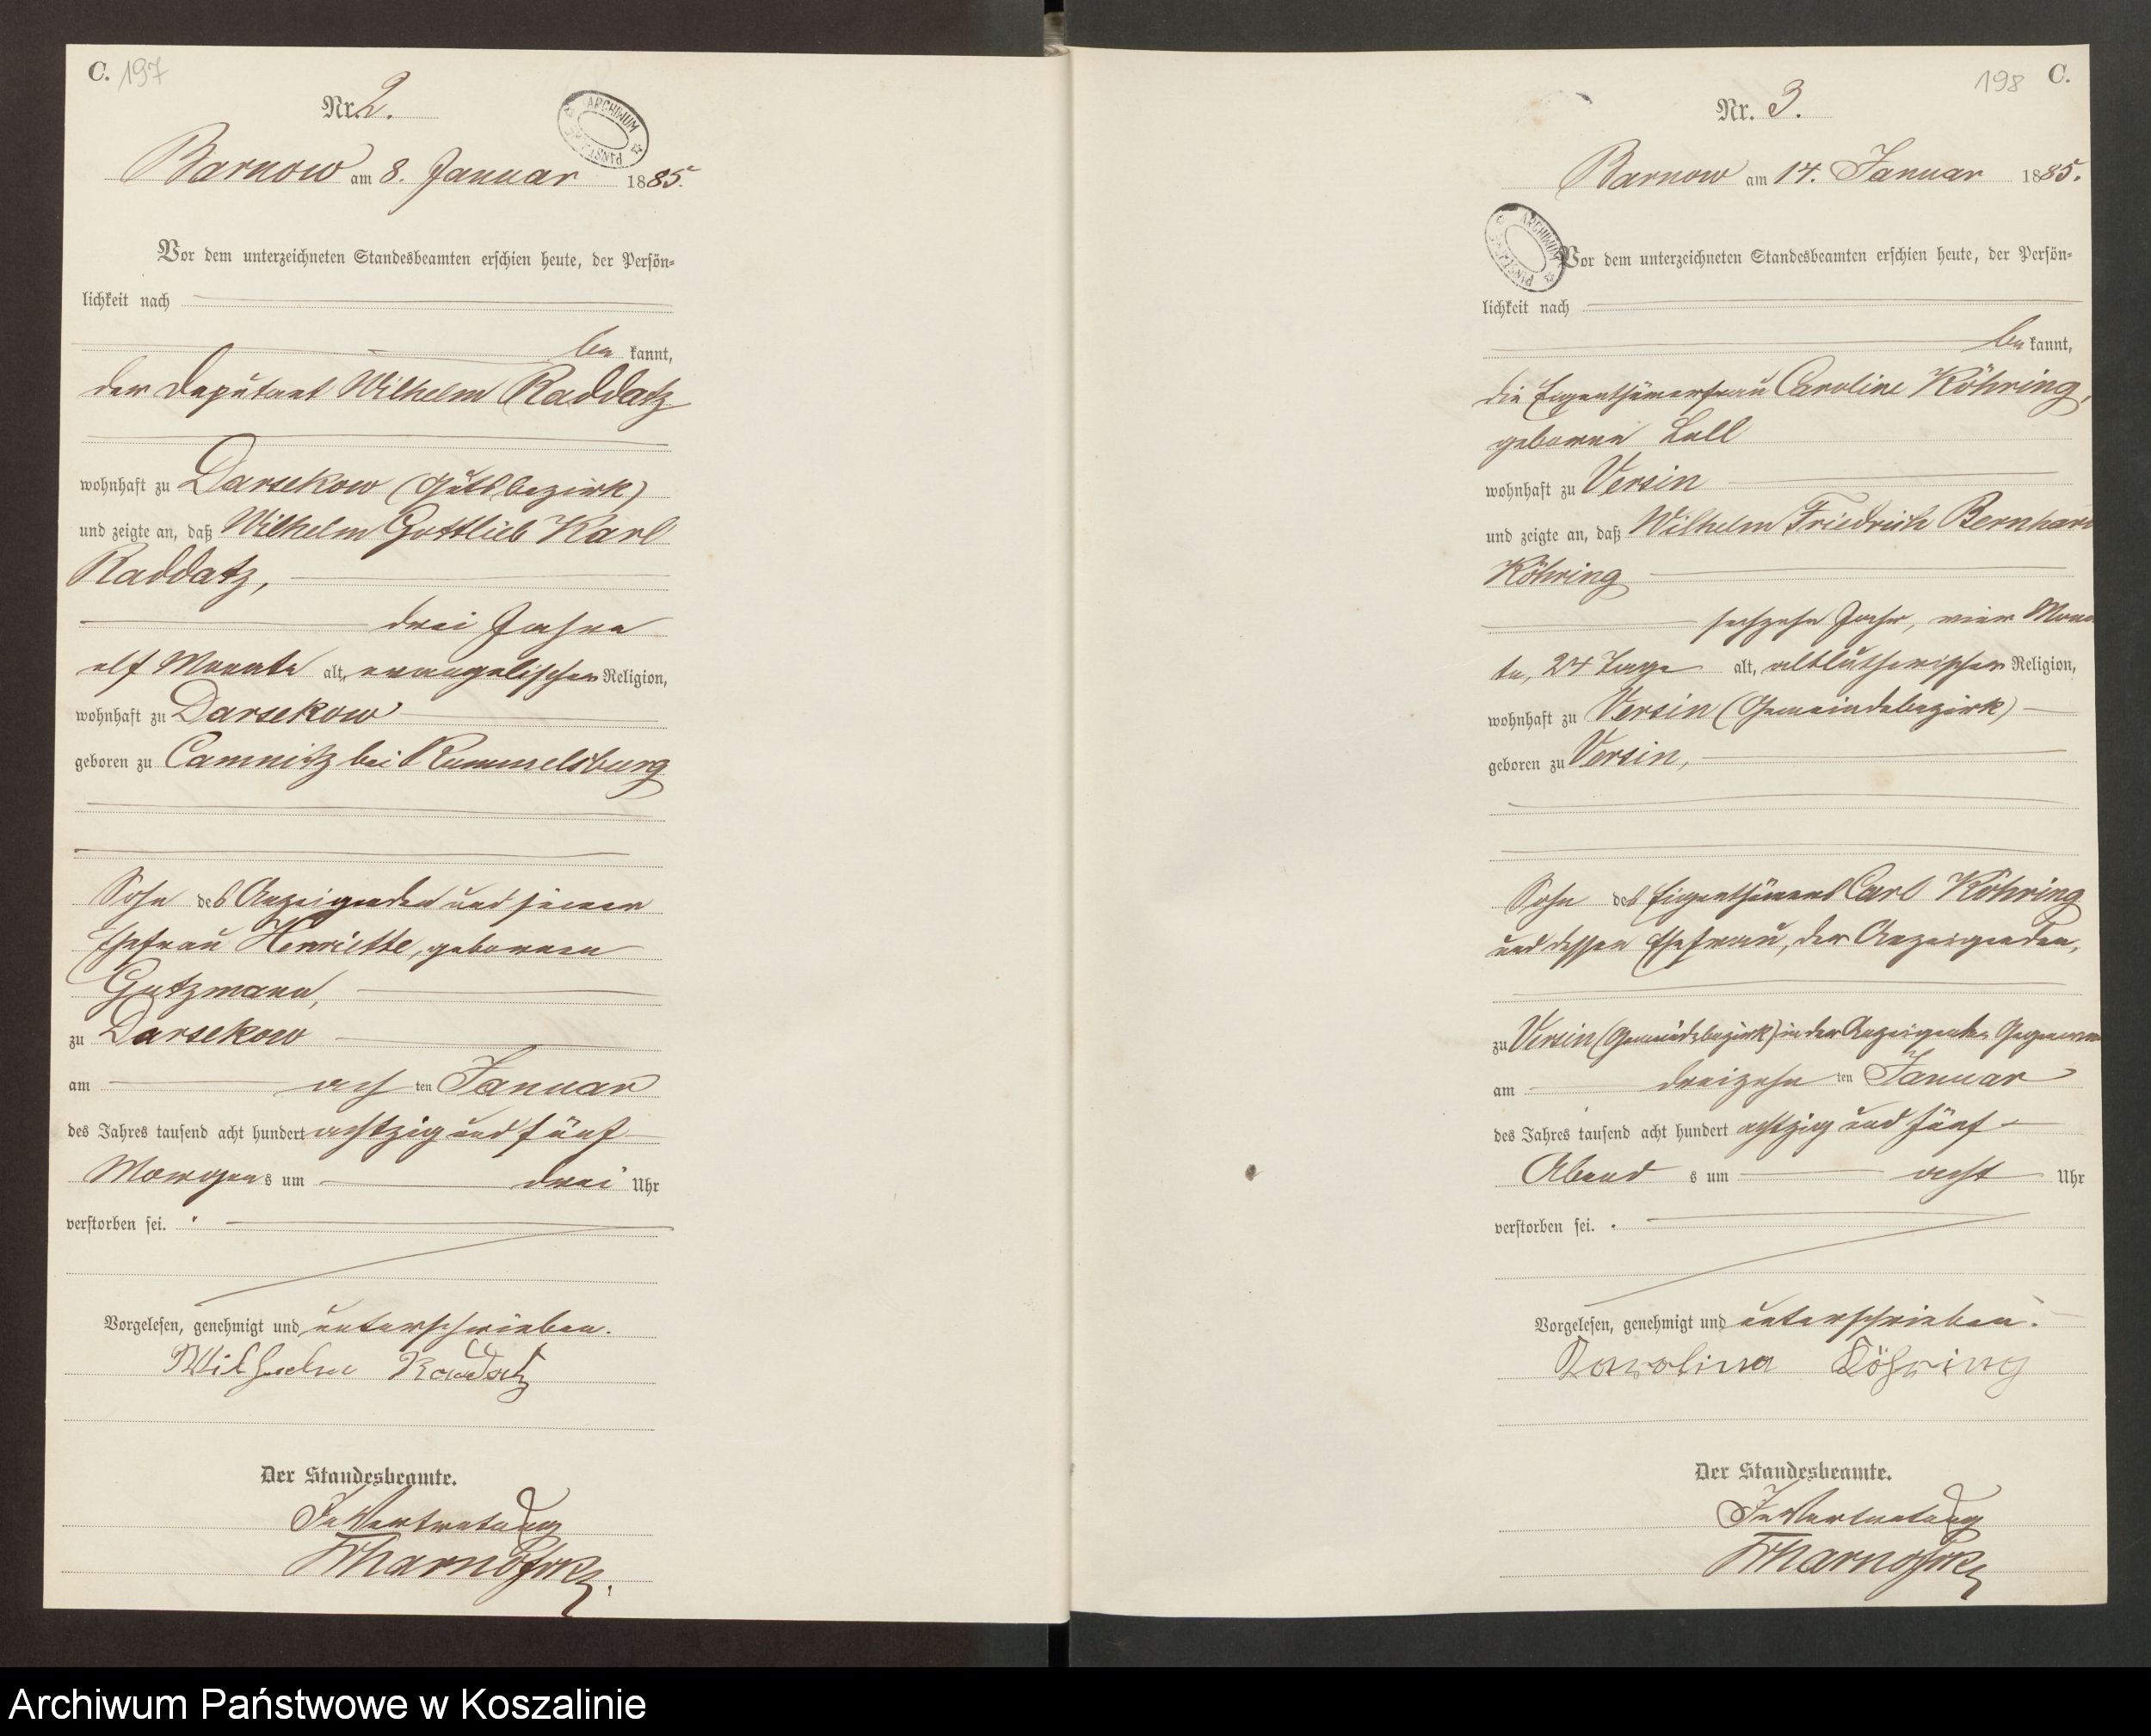 C. 197
Nr. 2.
ARCHIWUM
PAŃSTW
Barnow am 8. Januar 1885.
Vor dem unterzeichneten Standesbeamten erschien heute, der Persön-
lichkeit nach
be kannt,
der Deputant Wilhelm Raddatz
wohnhaft zu Darsekow (Gutsbezirk)
und zeigte an, daß Wilhelm Gottlieb Karl
Raddatz,
drei Jahre
elf Monate alt, evangelischer Religion,
wohnhaft zu Darsekow
geboren zu Camnitz bei Rummelsburg
Sohn des Anzeigenden und seiner
Ehefrau Henriette, geborenen
Gutzmann,
zu Darsekow
am ach ten Januar
des Jahres tausend acht hundert achtzig und fünf
Morgens um drei Uhr
verstorben sei.
Vorgelesen, genehmigt und unterschrieben.
Wilhelm Raddatz
Der Standesbeamte.
In Vertretung
198 C.
Nr. 3.
Barnow am 14. Januar 1885.
ARCHIWUM
PAŃSTW
Vor dem unterzeichneten Standesbeamten erschien heute, der Persön-
lichkeit nach
be kannt,
die Eigenthümerfrau Caroline Köhring,
geborene Lall
wohnhaft zu Versin
und zeigte an, daß Wilhelm Friedrich Bernhard
Köhring
sechzehn Jahr, vier Mona
te, 24 Tage alt, altlutherischer Religion,
wohnhaft zu Versin (Gemeindebezirk)
geboren zu Versin,
Sohn des Eigenthümers Carl Köhring
und dessen Ehefrau, der Anzeigenden,
zu Versin (Gemeindebezirk) in der Anzeigenden Gegenwart
am dreizehn ten Januar
des Jahres tausend acht hundert achtzig und fünf
Abend s um acht Uhr
verstorben sei.
Vorgelesen, genehmigt und unterschrieben.
Karolina Köhring
Der Standesbeamte.
In Vertretung
Archiwum Państwowe w Koszalinie